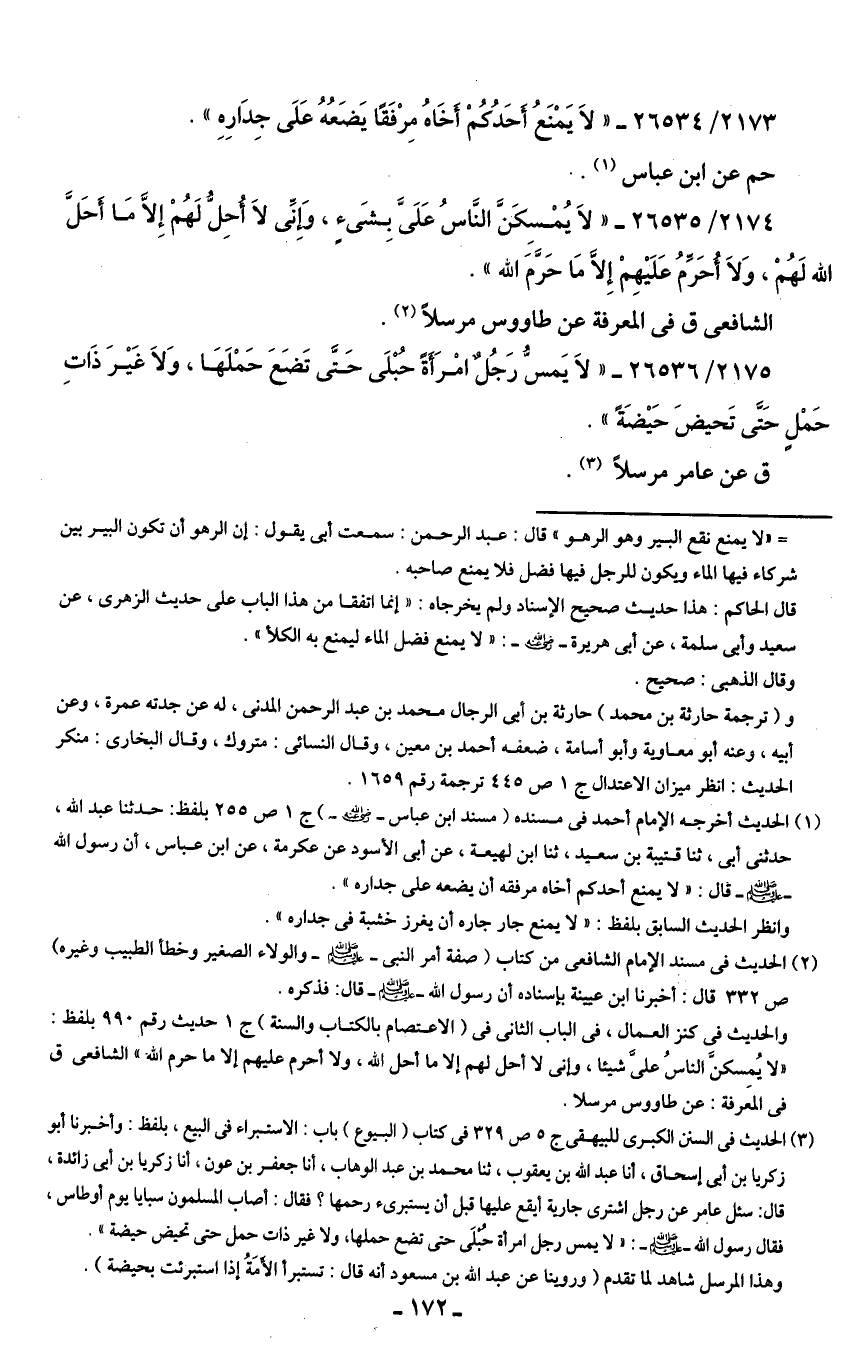 ٢١٧٣/ ٢٦٥٣٤ ـ « لاَ يَمْنَعُ أَحَدُكُمْ أَخَاهُ مِرْفَقًا يَضَعُهُ عَلَى جِدَارِهِ » .
حم عن ابن عباس (١) .
٢١٧٤/ ٢٦٥٣٥ ـ « لاَ يُمْسِكَنَّ النَّاسُ عَلَىَّ بِشَىءٍ ، وَإِنِّى لاَ أُحِلُّ لَهُمْ إِلاَّ مَا أَحَلَّ
الله لَهُمْ ، وَلاَ أُحَرِّمُ عَلَيْهِمْ إِلاَّ مَا حَرَّمَ الله » .
الشافعى ق فى المعرفة عن طاووس مرسلاً (٢) .
٢١٧٥/ ٢٦٥٣٦ ـ « لاَ يَمسُّ رَجُلٌ امْرَأَةً حُبْلَى حَتَّى تَضَعَ حَمْلَهَا ، وَلاَ غَيْرَ ذَاتِ
حَمْلٍ حَتَّى تَحيضَ حَيْضَةً » .
ق عن عامر مرسلاً (٣) .
= «لا يمنع نقع البير وهو الرهو » قال : عبد الرحمن : سمعت أبى يقول : إن الرهو أن تكون البير بين
شركاء فيها الماء ويكون للرجل فيها فضل فلا يمنع صاحبه .
قال الحاكم : هذا حديث صحيح الإسناد ولم يخرجاه : « إنما اتفقا من هذا الباب على حديث الزهرى ، عن
سعيد وأبى سلمة ، عن أبى هريرة ـ رضي الله عنه ـ : « لا يمنع فضل الماء ليمنع به الكلأ » .
وقال الذهبى : صحيح .
و ( ترجمة حارثة بن محمد ) حارثة بن أبى الرجال محمد بن عبد الرحمن المدنى ، له عن جدته عمرة ، وعن
أبيه ، وعنه أبو معاوية وأبو أسامة ، ضعفه أحمد بن معين ، وقال النسائى : متروك ، وقال البخارى : منكر
الحديث : انظر ميزان الاعتدال ج ١ ص ٤٤٥ ترجمة رقم ١٦٥٩ .
(١) الحديث أخرجه الإمام أحمد فى مسنده ( مسند ابن عباس ـ رضي الله عنه ـ ) ج ١ ص ٢٥٥ بلفظ: حدثنا عبد الله ،
حدثنى أبى ، ثنا قتيبة بن سعيد ، ثنا ابن لهيعة ، عن أبى الأسود عن عكرمة ، عن ابن عباس ، أن رسول الله
ـ ﷺ ـ قال : « لا يمنع أحدكم أخاه مرفقه أن يضعه على جداره » .
وانظر الحديث السابق بلفظ : « لا يمنع جار جاره أن يغرز خشبة فى جداره » .
(٢) الحديث فى مسند الإمام الشافعى من كتاب ( صفة أمر النبى ـ ﷺ ـ والولاء الصغير وخطأ الطبيب وغيره)
ص ٣٣٢ قال : أخبرنا ابن عيينة بإسناده أن رسول الله ـ ﷺ ـ قال: فذكره .
والحديث فى كنز العمال ، فى الباب الثانى فى ( الاعتصام بالكتاب والسنة ) ج ١ حديث رقم ٩٩٠ بلفظ :
«لا يُمسِكنَّ الناسُ علىَّ شيئا ، وإنى لا أحل لهم إلا ما أحل الله ، ولا أحرم عليهم إلا ما حرم الله » الشافعى ق
فى المعرفة : عن طاووس مرسلا .
(٣) الحديث فى السنن الكبرى للبيهقى ج ٥ ص ٣٢٩ فى كتاب ( البيوع ) باب : الاستبراء فى البيع ، بلفظ : وأخبرنا أبو
زكريا بن أبى إسحاق ، أنا عبد الله بن يعقوب ، ثنا محمد بن عبد الوهاب ، أنا جعفر بن عون ، أنا زكريا بن أبى زائدة ،
قال: سئل عامر عن رجل اشترى جارية أيقع عليها قبل أن يستبرىء رحمها ؟ فقال : أصاب المسلمون سبايا يوم أوطاس ،
فقال رسول الله ـ ﷺ ـ : « لا يمس رجل امرأة حُبْلَى حتى تضع حملها، ولا غير ذات حمل حتى تحيض حيضة » .
وهذا المرسل شاهد لما تقدم ( وروينا عن عبد الله بن مسعود أنه قال : تستبرأ الأمَةُ إذا استبرئت بحيضة ) .
ـ ١٧٢ ـ